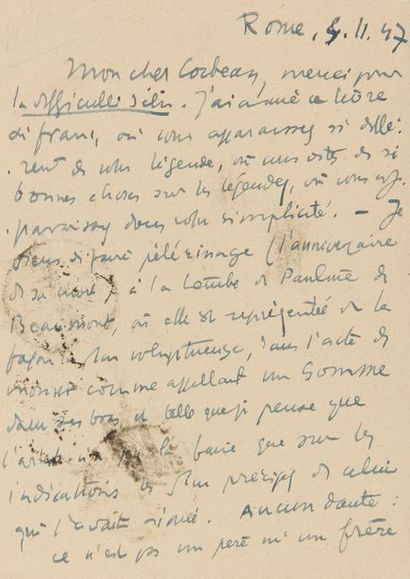 Rome, 4.11.47
Mon cher Cocteau, merci pour
la difficulté d'être. J'ai aimé ce livre
di franc, où vous apparaissez si diffé-
rent de votre légende, où vous dites de si
bonnes choses sur les légendes, où vous ap-
paraissez dans votre simplicité. – Je
viens di faire pèlerinage (l'anniversaire
de sa mort) à la tombe de Pauline de
Beaumont, où elle est représentée de la
façon la plus voluptueuse, dans l'acte de
mourir comme appellant un homme
dans ses bras, et telle que je pense que
l'artiste n'a pu le faire que sur les
indications les plus précises de celui
qui l'avait aimée. Aucun doute :
ce n'est pas un père ni un frère